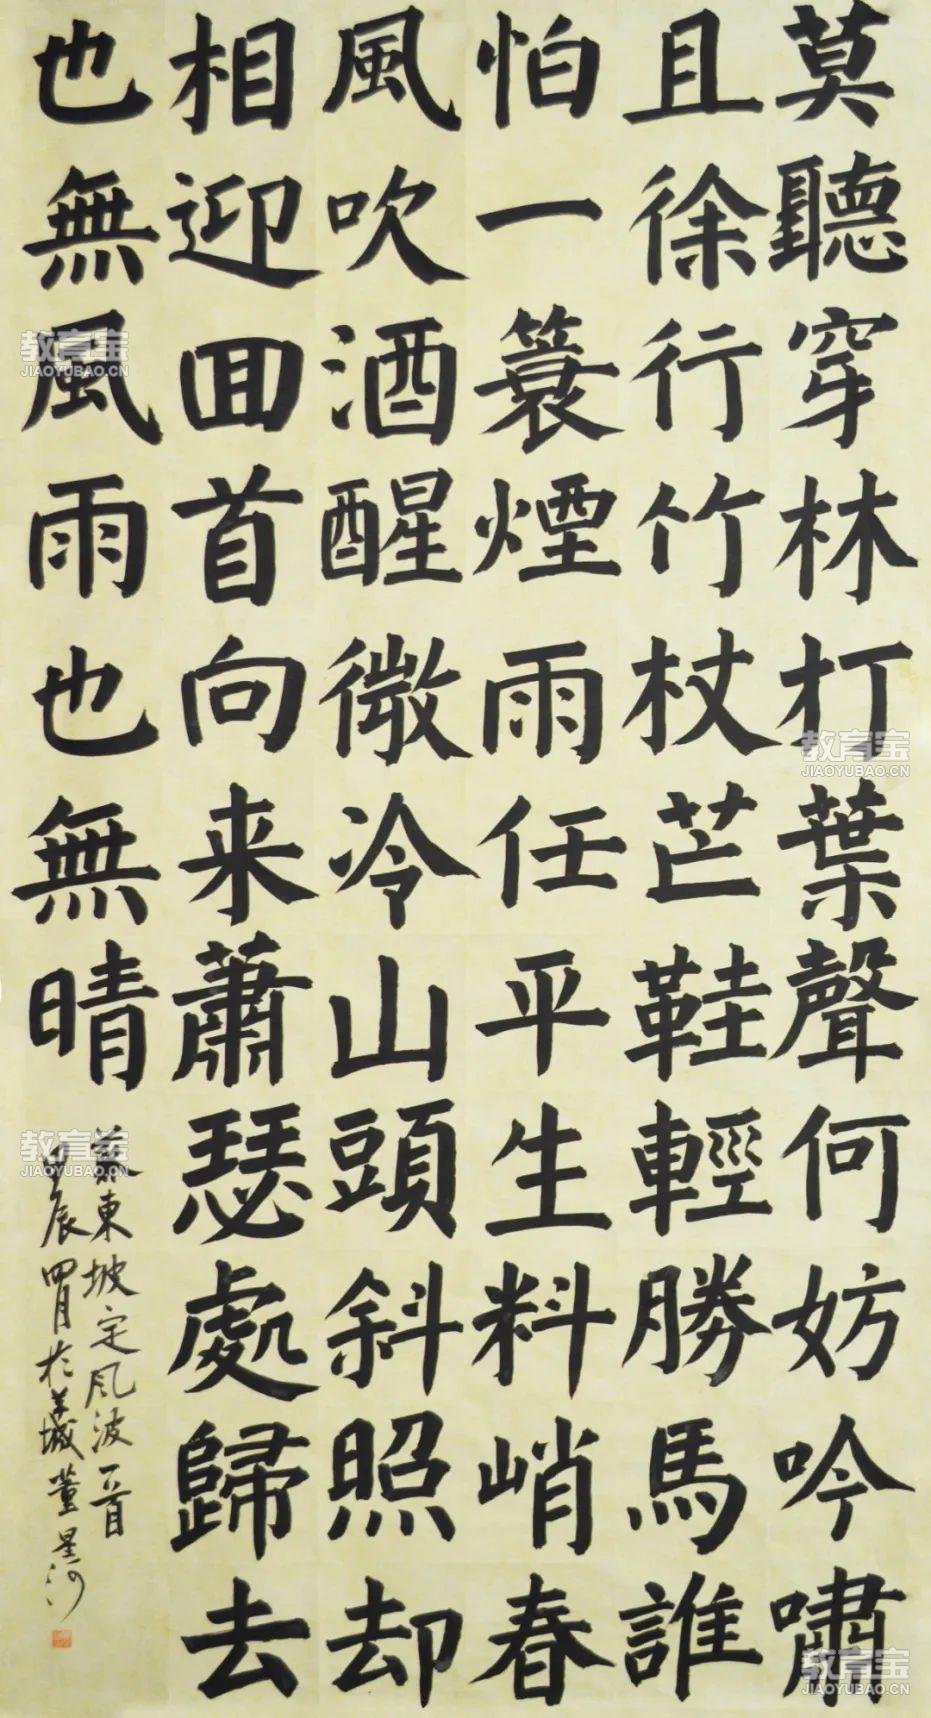 莫聽穿林打葉聲何妨吟嘯
且徐行竹杖芒鞋輕勝馬誰
怕一蓑煙雨任平生料峭春
風吹酒醒微冷山頭斜照却
相迎回首向来蕭瑟處歸去
也無風雨也無晴
蘇東坡定风波一首
甲辰四月於羊城董星河
教育宝
JIAOYUBAO.CN
教育宝
JIAOYUBAO.CN
教育宝
JIAOYUBAO.CN
教育宝
JIAOYUBAO.CN